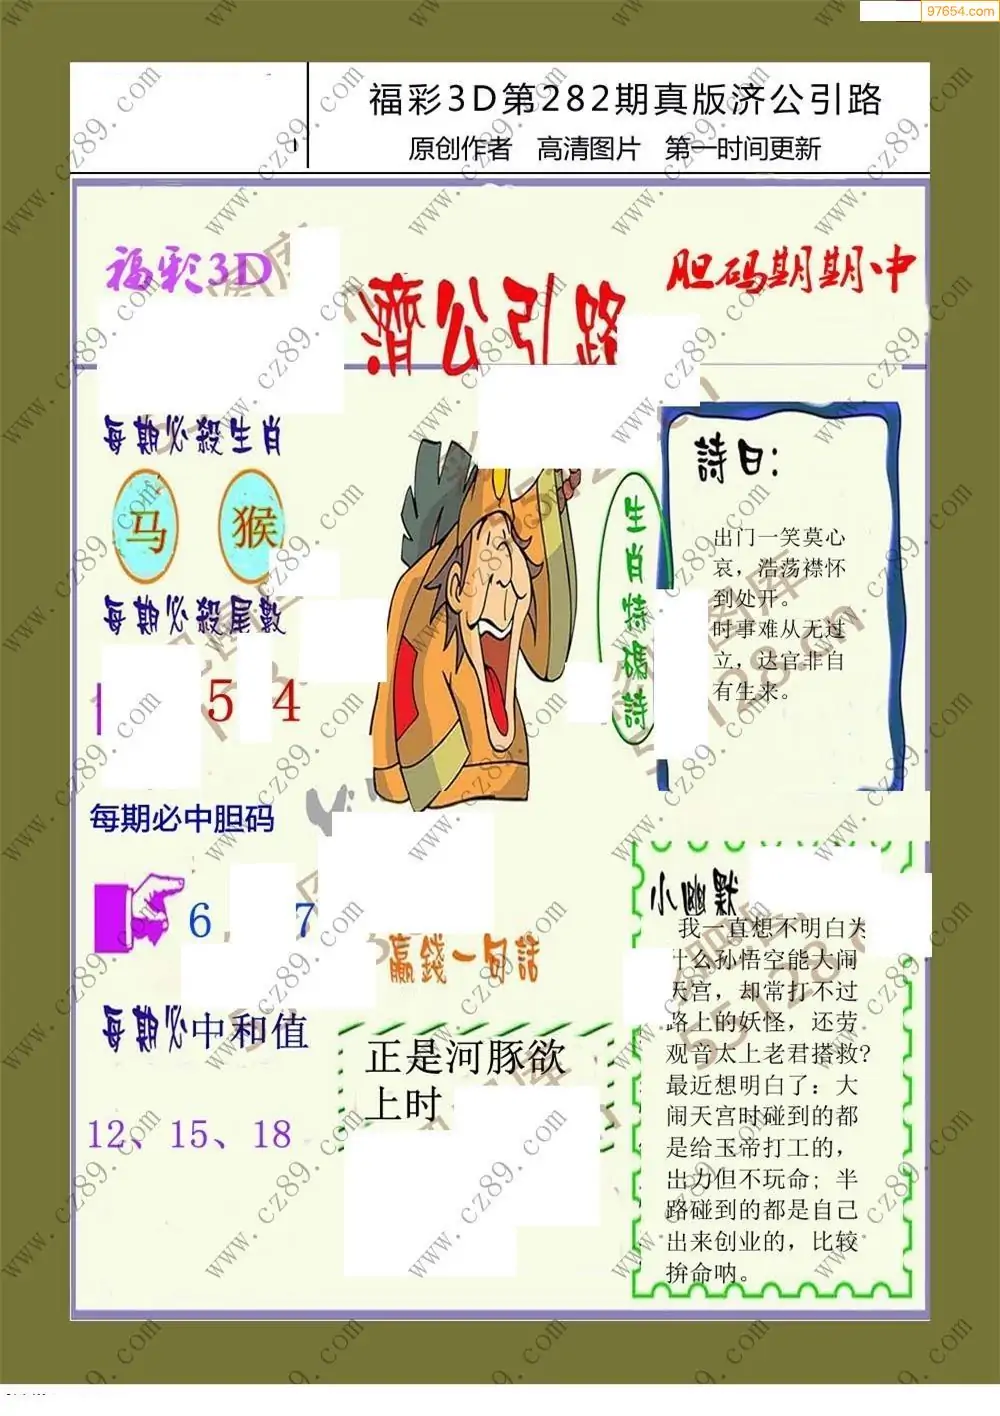 97654.com
福彩3D第282期真版济公引路
原创作者 高清图片 第一时间更新
福彩3D
胆码期期中
濟公引路
每期必殺生肖
马 猴
每期必殺尾數
5 4
每期必中胆码
6 7
每期必中和值
12、15、18
生肖特碼詩
詩曰：
出门一笑莫心
哀，浩荡襟怀
到处开。
时事难从无过
立，达官非自
有生来。
赢錢一句話
正是河豚欲
上时
小幽默
我一直想不明白为
什么孙悟空能大闹
天宫，却常打不过
路上的妖怪，还劳
观音太上老君搭救?
最近想明白了：大
闹天宫时碰到的都
是给玉帝打工的，
出力但不玩命；半
路碰到的都是自己
出来创业的，比较
拚命呐。
www.cz89.com